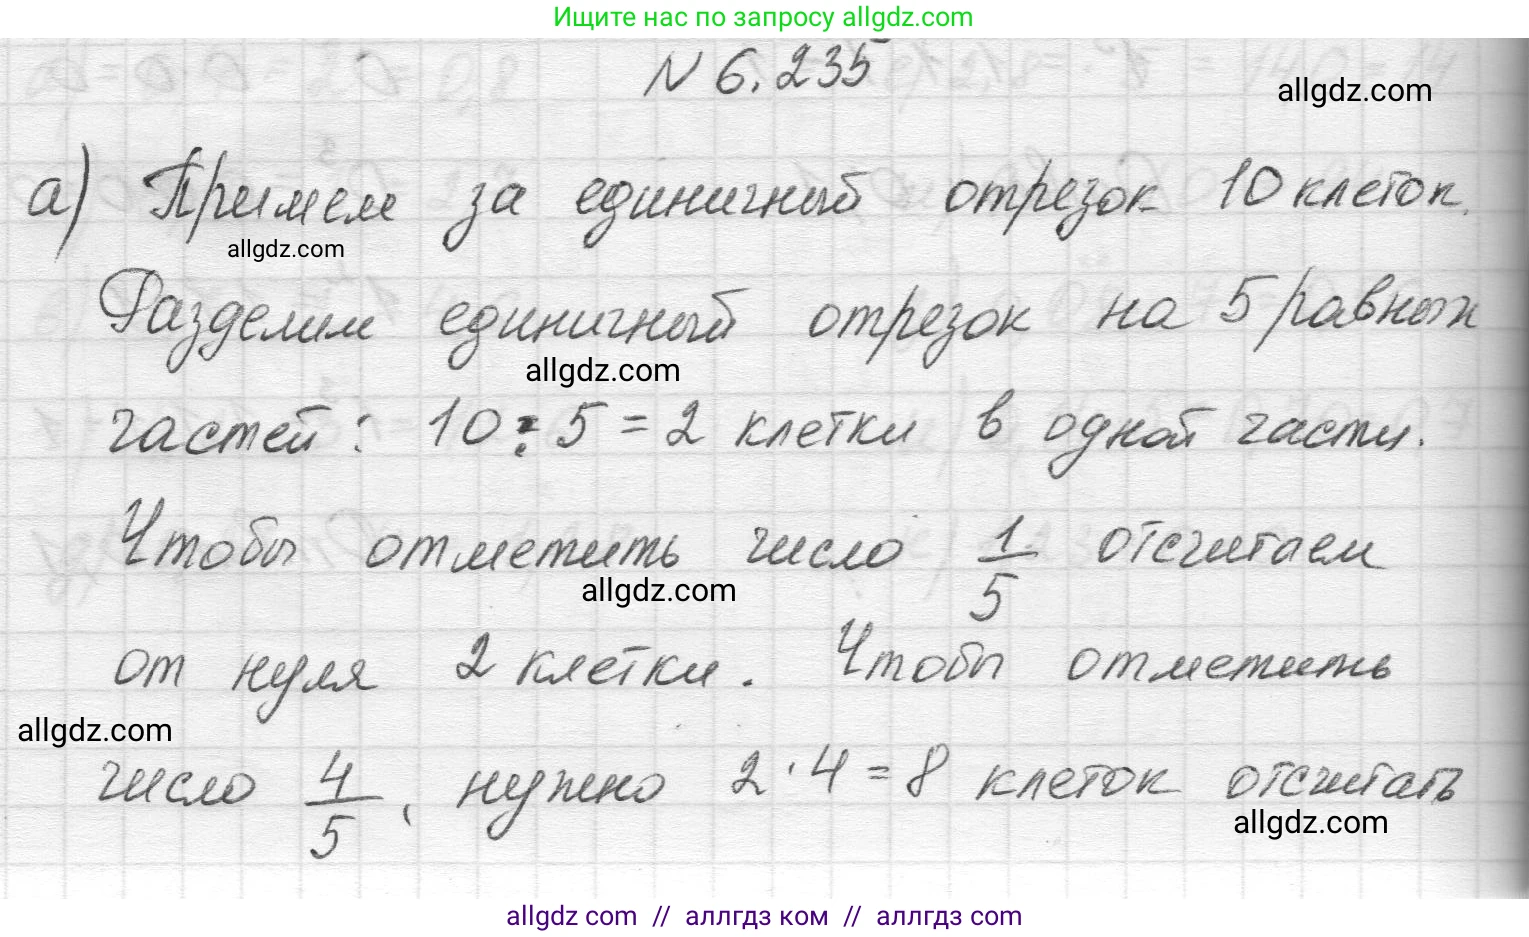 Ищите нас по запросу allgdz.com
N 6.235
allgdz.com
а) Примем за единичный отрезок 10 клеток.
allgdz.com
Разделим единичный отрезок на 5 равных
allgdz.com
частей: 10 : 5 = 2 клетки в одной части.
Чтобы отметить число 1/5 отсчитаем
allgdz.com
от нуля 2 клетки. Чтобы отметить
allgdz.com
число 4/5, нужно 2 · 4 = 8 клеток отсчитать
allgdz.com
allgdz com // аллгдз ком // аллгдз com